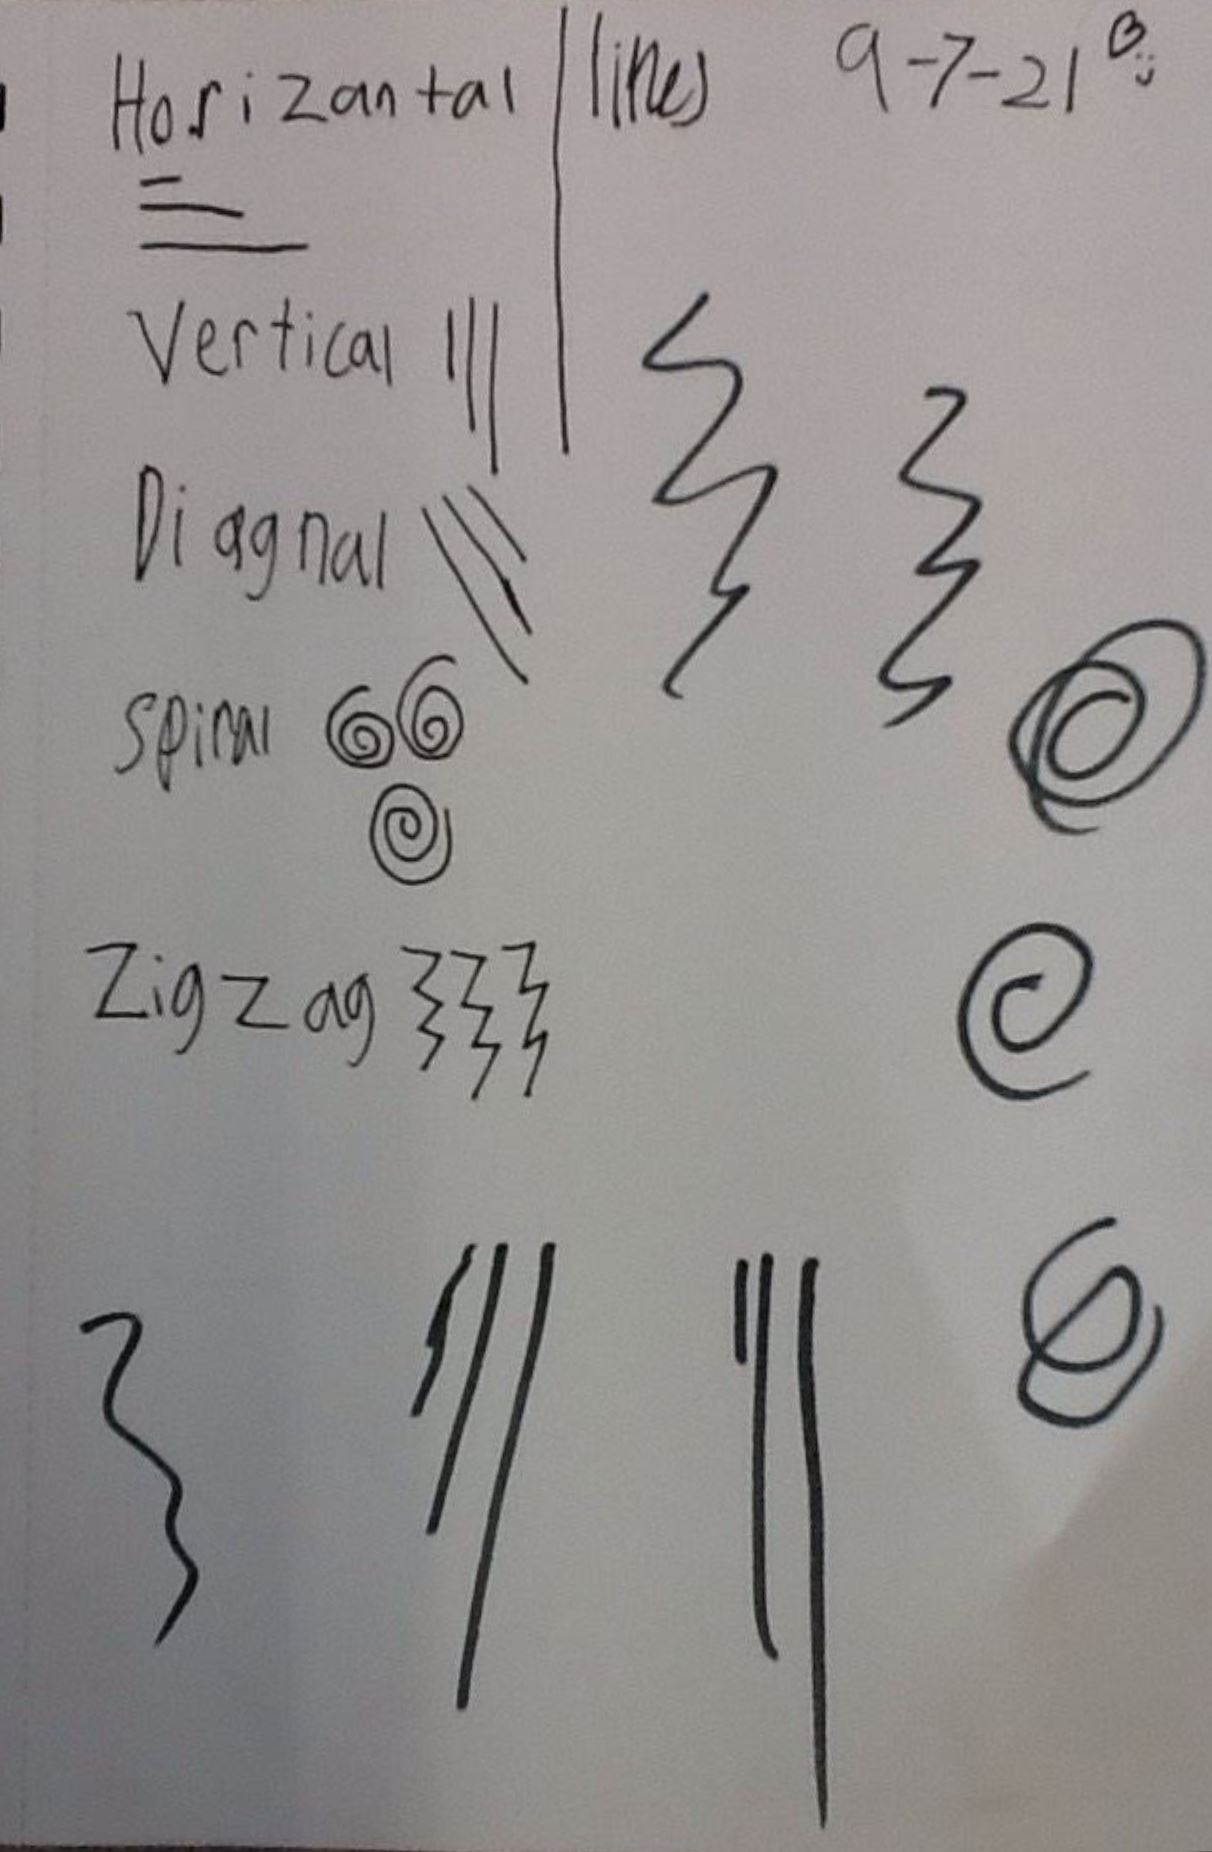 Horizantal lines 9-7-21
Vertical
Diagnal
Spiral
Zigzag